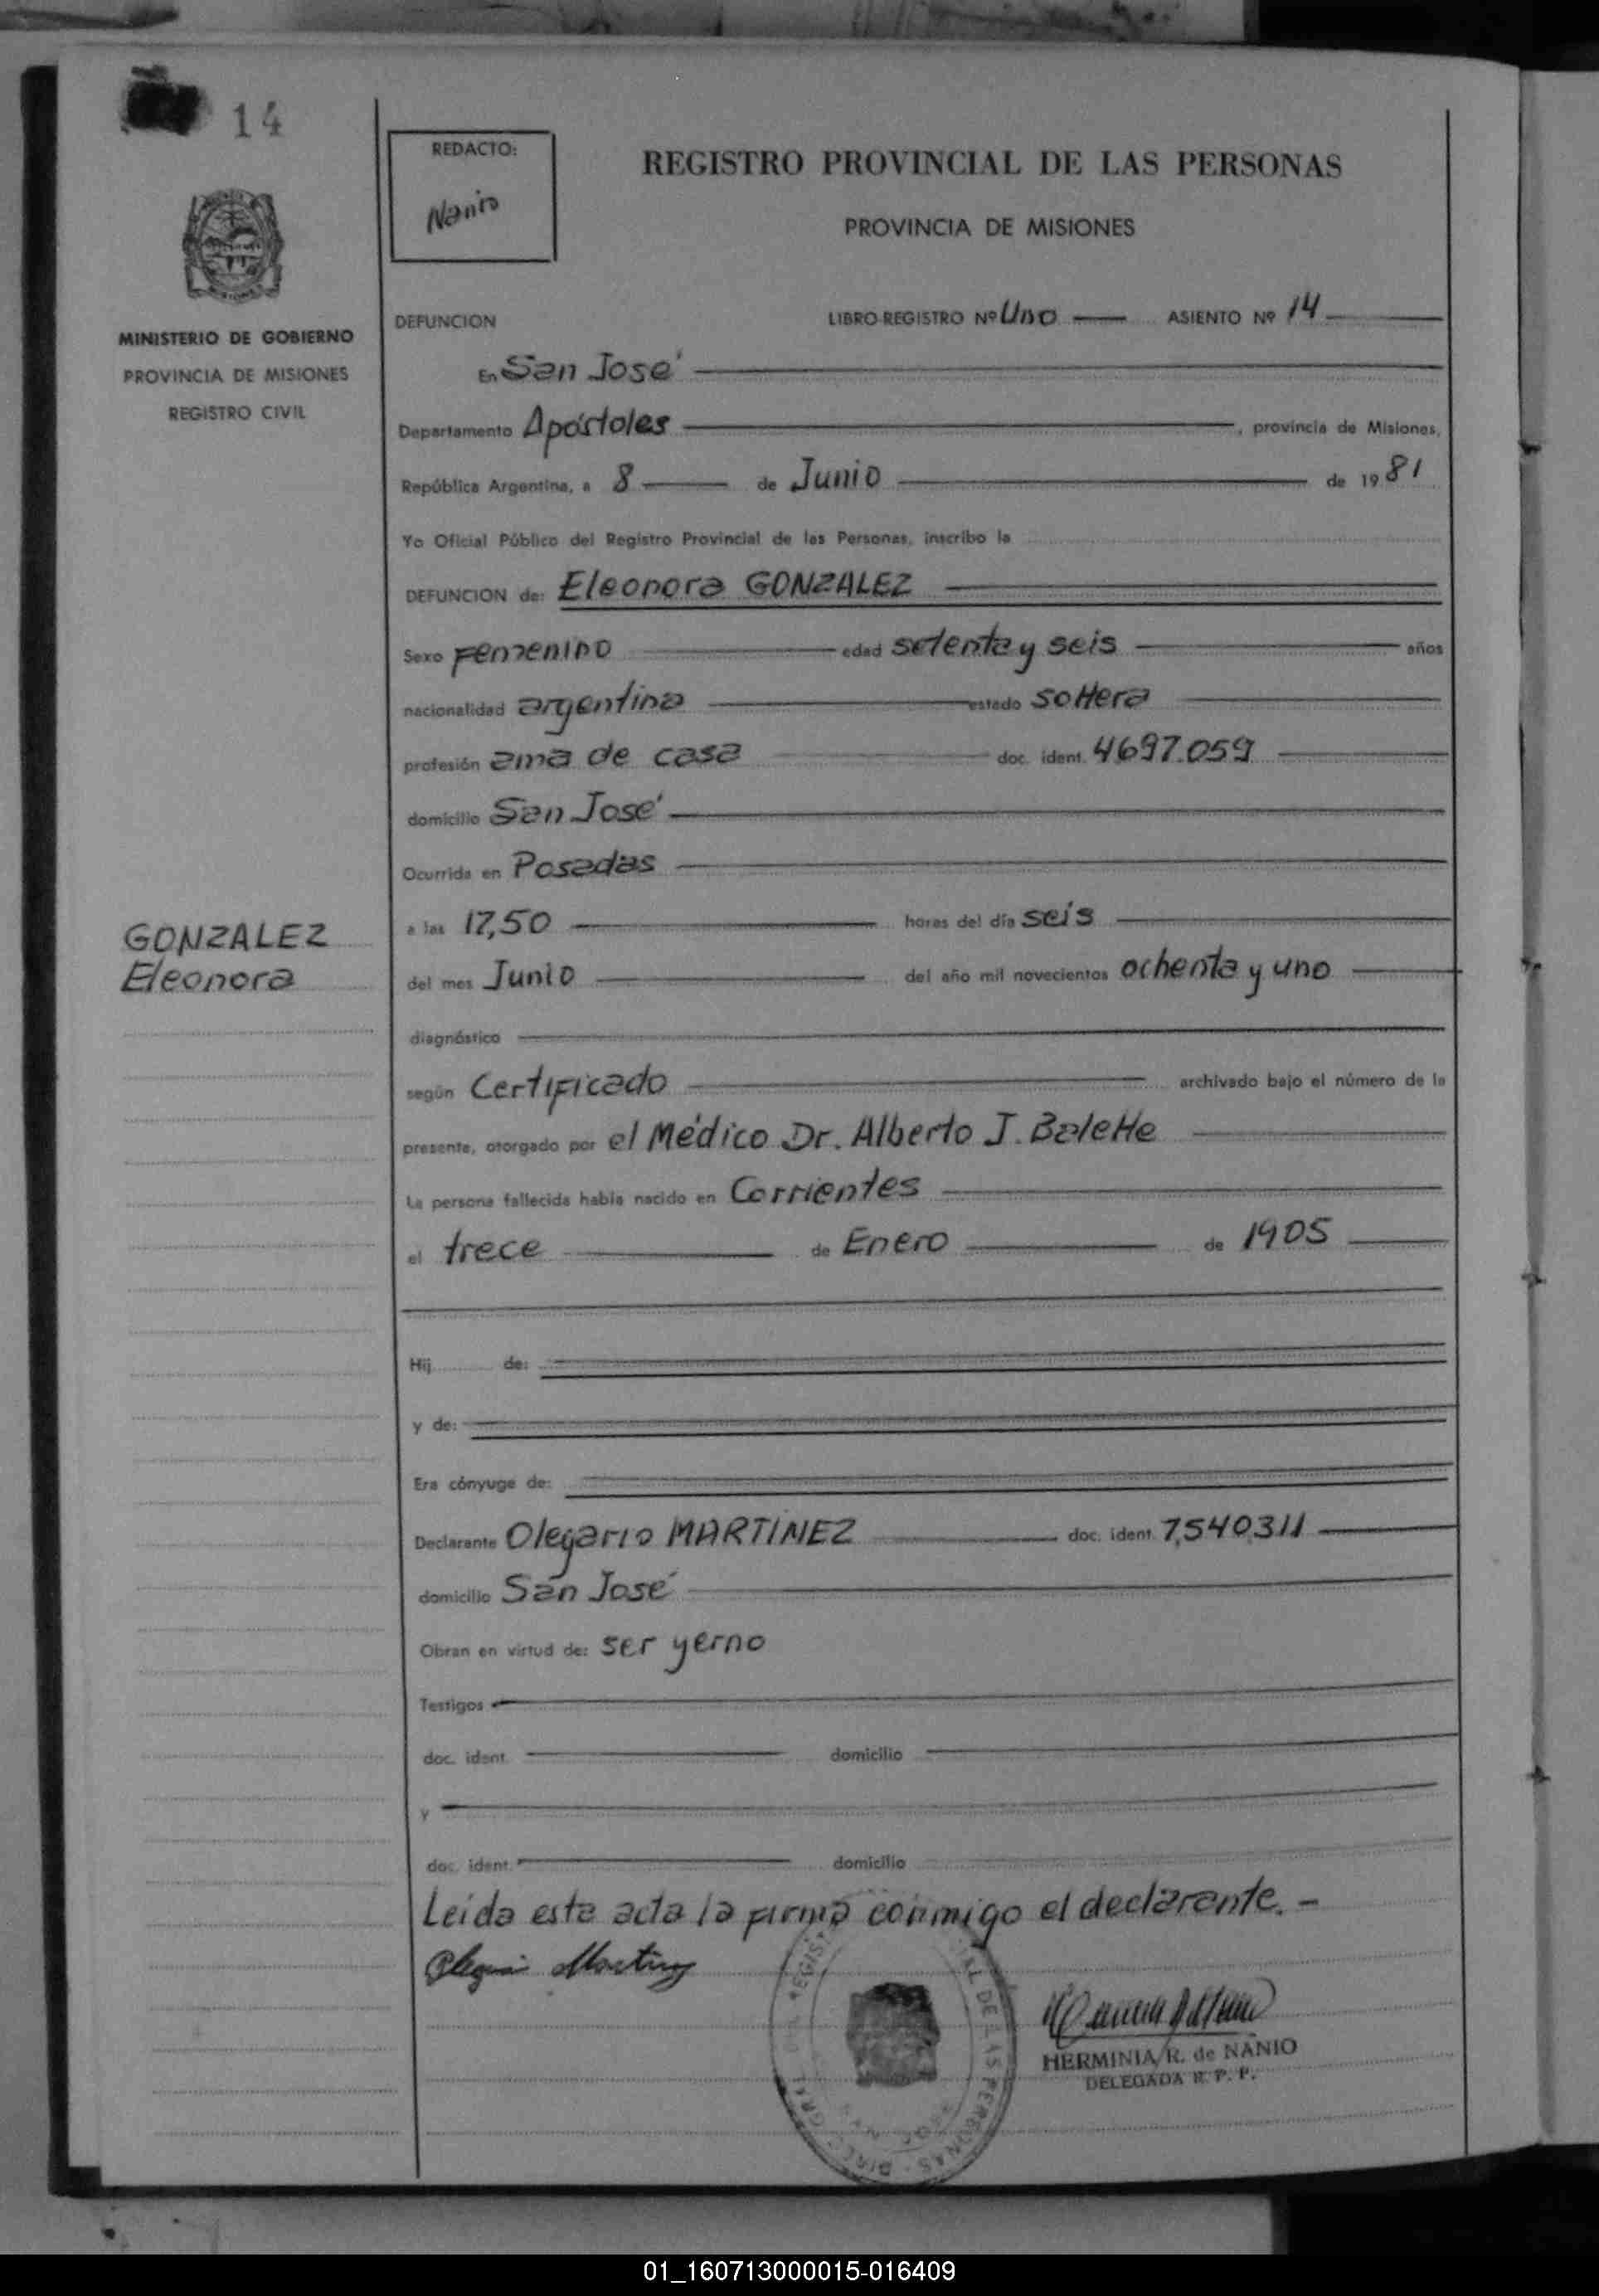 14
REDACTO:
Nanio
REGISTRO PROVINCIAL DE LAS PERSONAS
PROVINCIA DE MISIONES
MINISTERIO DE GOBIERNO
PROVINCIA DE MISIONES
REGISTRO CIVIL
DEFUNCION LIBRO REGISTRO Nº Uno ASIENTO Nº 14
En San José
Departamento Apóstoles, provincia de Misiones,
República Argentina, a 8 de Junio de 1981
Yo Oficial Público del Registro Provincial de las Personas, inscribo la
DEFUNCION de: Eleonora GONZALEZ
Sexo Femenino edad setenta y seis años
nacionalidad argentina estado soltera
profesión ama de casa doc. ident. 4697.059
domicilio San José
Ocurrida en Posadas
a las 17,50 horas del día seis
GONZALEZ
Eleonora
del mes Junio del año mil novecientos ochenta y uno
diagnóstico
según Certificado archivado bajo el número de la
presente, otorgado por el Médico Dr. Alberto J. Balette
La persona fallecida había nacido en Corrientes
el trece de Enero de 1905
Hij de:
y de:
Era cónyuge de:
Declarante Olegario MARTINEZ doc. ident. 7,540,311
domicilio San José
Obran en virtud de: ser yerno
Testigos
doc. ident. domicilio
y
doc. ident. domicilio
Leida esta acta la firma conmigo el declarante.-
HERMINIA R. de NANIO
DELEGADA R. P. P.
01_160713000015-016409